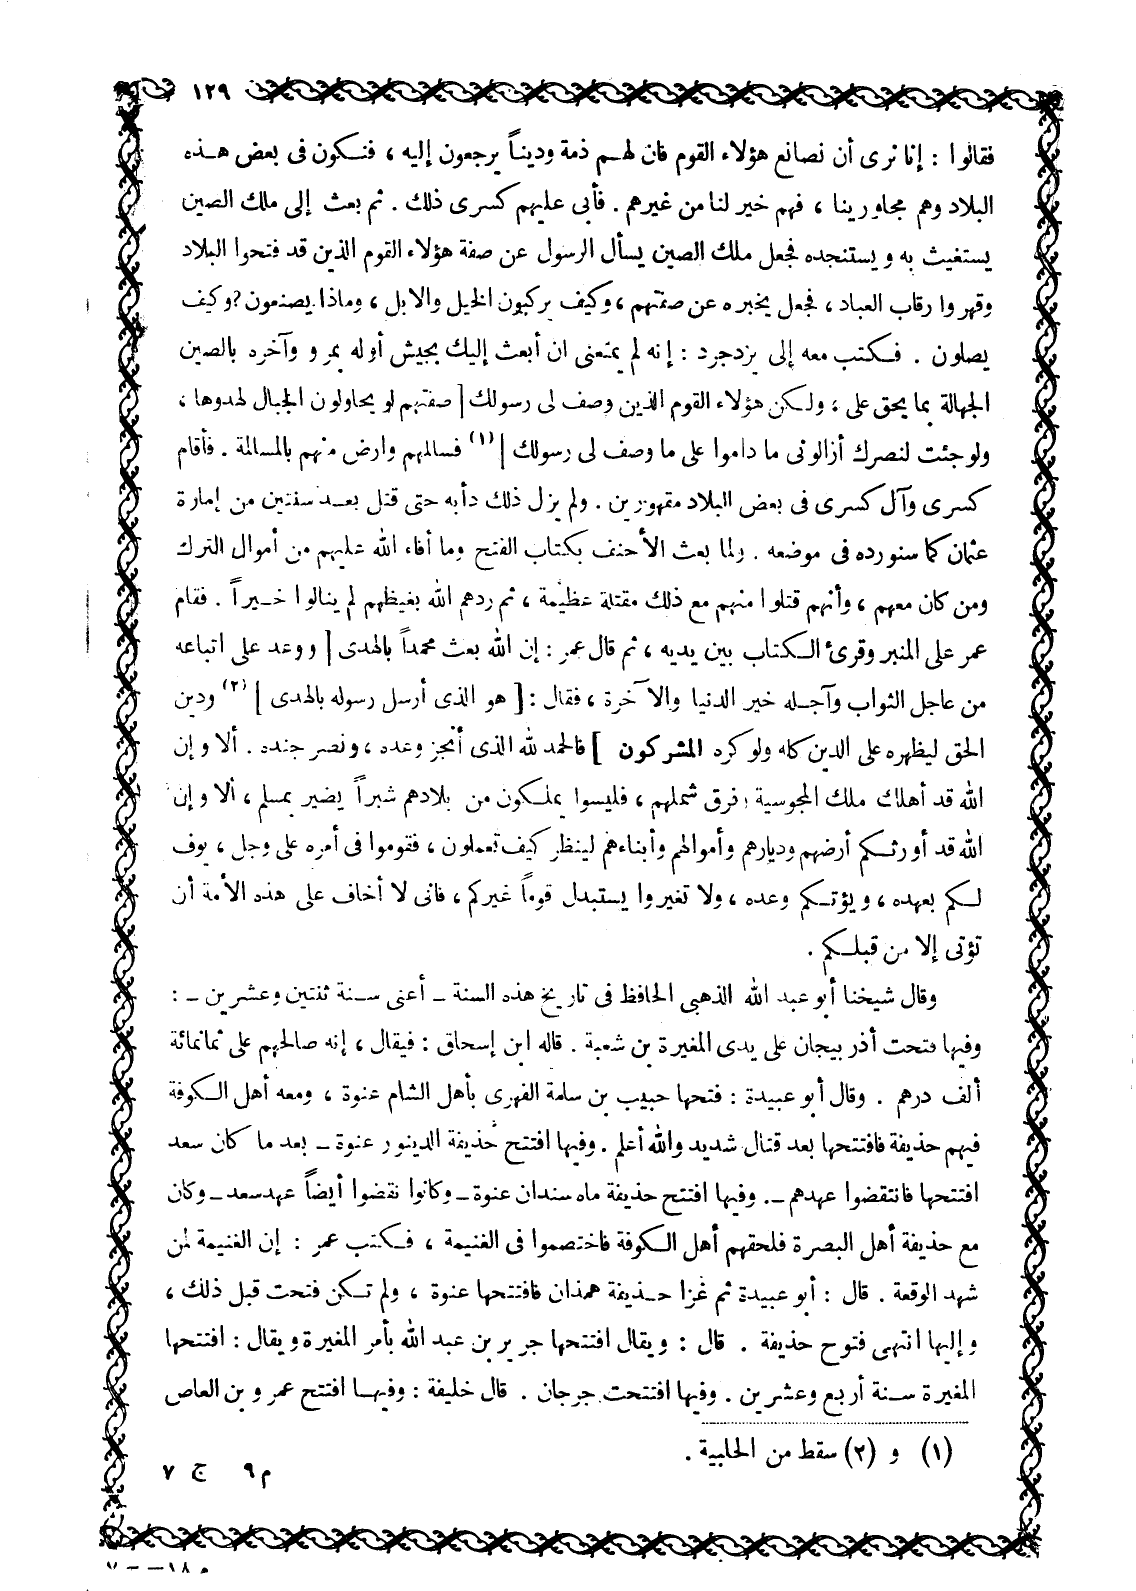 ١٢٩
فقالوا : إنا نرى أن نصانع هؤلاء القوم فان لهم ذمة وديناً يرجعون إليه ، فنكون فى بعض هذه
البلاد وهم مجاورينا ، فهم خير لنا من غيرهم . فأبى عليهم كسرى ذلك . ثم بعث إلى ملك الصين
يستغيث به ويستنجده فجعل ملك الصين يسأل الرسول عن صفة هؤلاء القوم الذين قد فتحوا البلاد
وقهروا رقاب العباد ، فجعل يخبره عن صفتهم ، وكيف يركبون الخيل والابل ، وماذا يصنعون ? وكيف
يصلون . فكتب معه إلى يزدجرد : إنه لم يمنعنى ان أبعث إليك بجيش أوله بمرو وآخره بالصين
الجهالة بما يحق على ، ولكن هؤلاء القوم الذين وصف لى رسولك [ صفتهم لو يحاولون الجبال لهدوها ،
ولو جئت لنصرك أزالونى ما داموا على ما وصف لى رسولك ] (١) فسالمهم وارض منهم بالمسالمة . فأقام
كسرى وآل كسرى فى بعض البلاد مقهورين . ولم يزل ذلك دأبه حتى قتل بعد سنتين من إمارة
عثمان كما سنورده فى موضعه . ولما بعث الأحنف بكتاب الفتح وما أفاء الله عليهم من أموال الترك
ومن كان معهم ، وأنهم قتلوا منهم مع ذلك مقتلة عظيمة ، ثم ردهم الله بغيظهم لم ينالوا خيراً . فقام
عمر على المنبر وقرئ الكتاب بين يديه ، ثم قال عمر : إن الله بعث محمداً بالهدى [ ووعد على اتباعه
من عاجل الثواب وآجله خير الدنيا والآخرة ، فقال : [ هو الذى أرسل رسوله بالهدى ] (٢) ودين
الحق ليظهره على الدين كله ولو كره المشركون ] فالحمد لله الذى أنجز وعده ، ونصر جنده . ألا وإن
الله قد أهلك ملك المجوسية وفرق شملهم ، فليسوا يملكون من بلادهم شبراً يضير بمسلم ، ألا وإن
الله قد أورثكم أرضهم وديارهم وأموالهم وأبناءهم لينظر كيف تعملون ، فقوموا فى أمره على وجل ، يوف
لكم بعهده ، ويؤتكم وعده ، ولا تغيروا يستبدل قوماً غيركم ، فانى لا أخاف على هذه الأمة أن
تؤتى إلا من قبلكم .
وقال شيخنا أبو عبد الله الذهبى الحافظ فى تاريخ هذه السنة ــ أعنى سنة ثنتين وعشرين ــ :
وفيها فتحت أذربيجان على يدى المغيرة بن شعبة . قاله ابن إسحاق : فيقال ، إنه صالحهم على ثمانمائة
ألف درهم . وقال أبو عبيدة : فتحها حبيب بن سلمة الفهرى بأهل الشام عنوة ، ومعه أهل الكوفة
فيهم حذيفة فافتتحها بعد قتال شديد والله أعلم . وفيها افتتح حذيفة الدينور عنوة ــ بعد ما كان سعد
افتتحها فانتقضوا عهدهم ــ . وفيها افتتح حذيفة ماه سندان عنوة ــ وكانوا نقضوا أيضاً عهد سعد ــ وكان
مع حذيفة أهل البصرة فلحقهم أهل الكوفة فاختصموا فى الغنيمة ، فكتب عمر : إن الغنيمة لمن
شهد الوقعة . قال : أبو عبيدة ثم غزا حذيفة همذان فافتتحها عنوة ، ولم تكن فتحت قبل ذلك ،
وإليها انتهى فتوح حذيفة . قال : ويقال افتتحها جرير بن عبد الله بأمر المغيرة ويقال : افتتحها
المغيرة سنة أربع وعشرين . وفيها افتتحت جرجان . قال خليفة : وفيها افتتح عمرو بن العاص
(١) و (٢) سقط من الحلبية .
م ٩ ج ٧
م ١٨ ــ - ٧